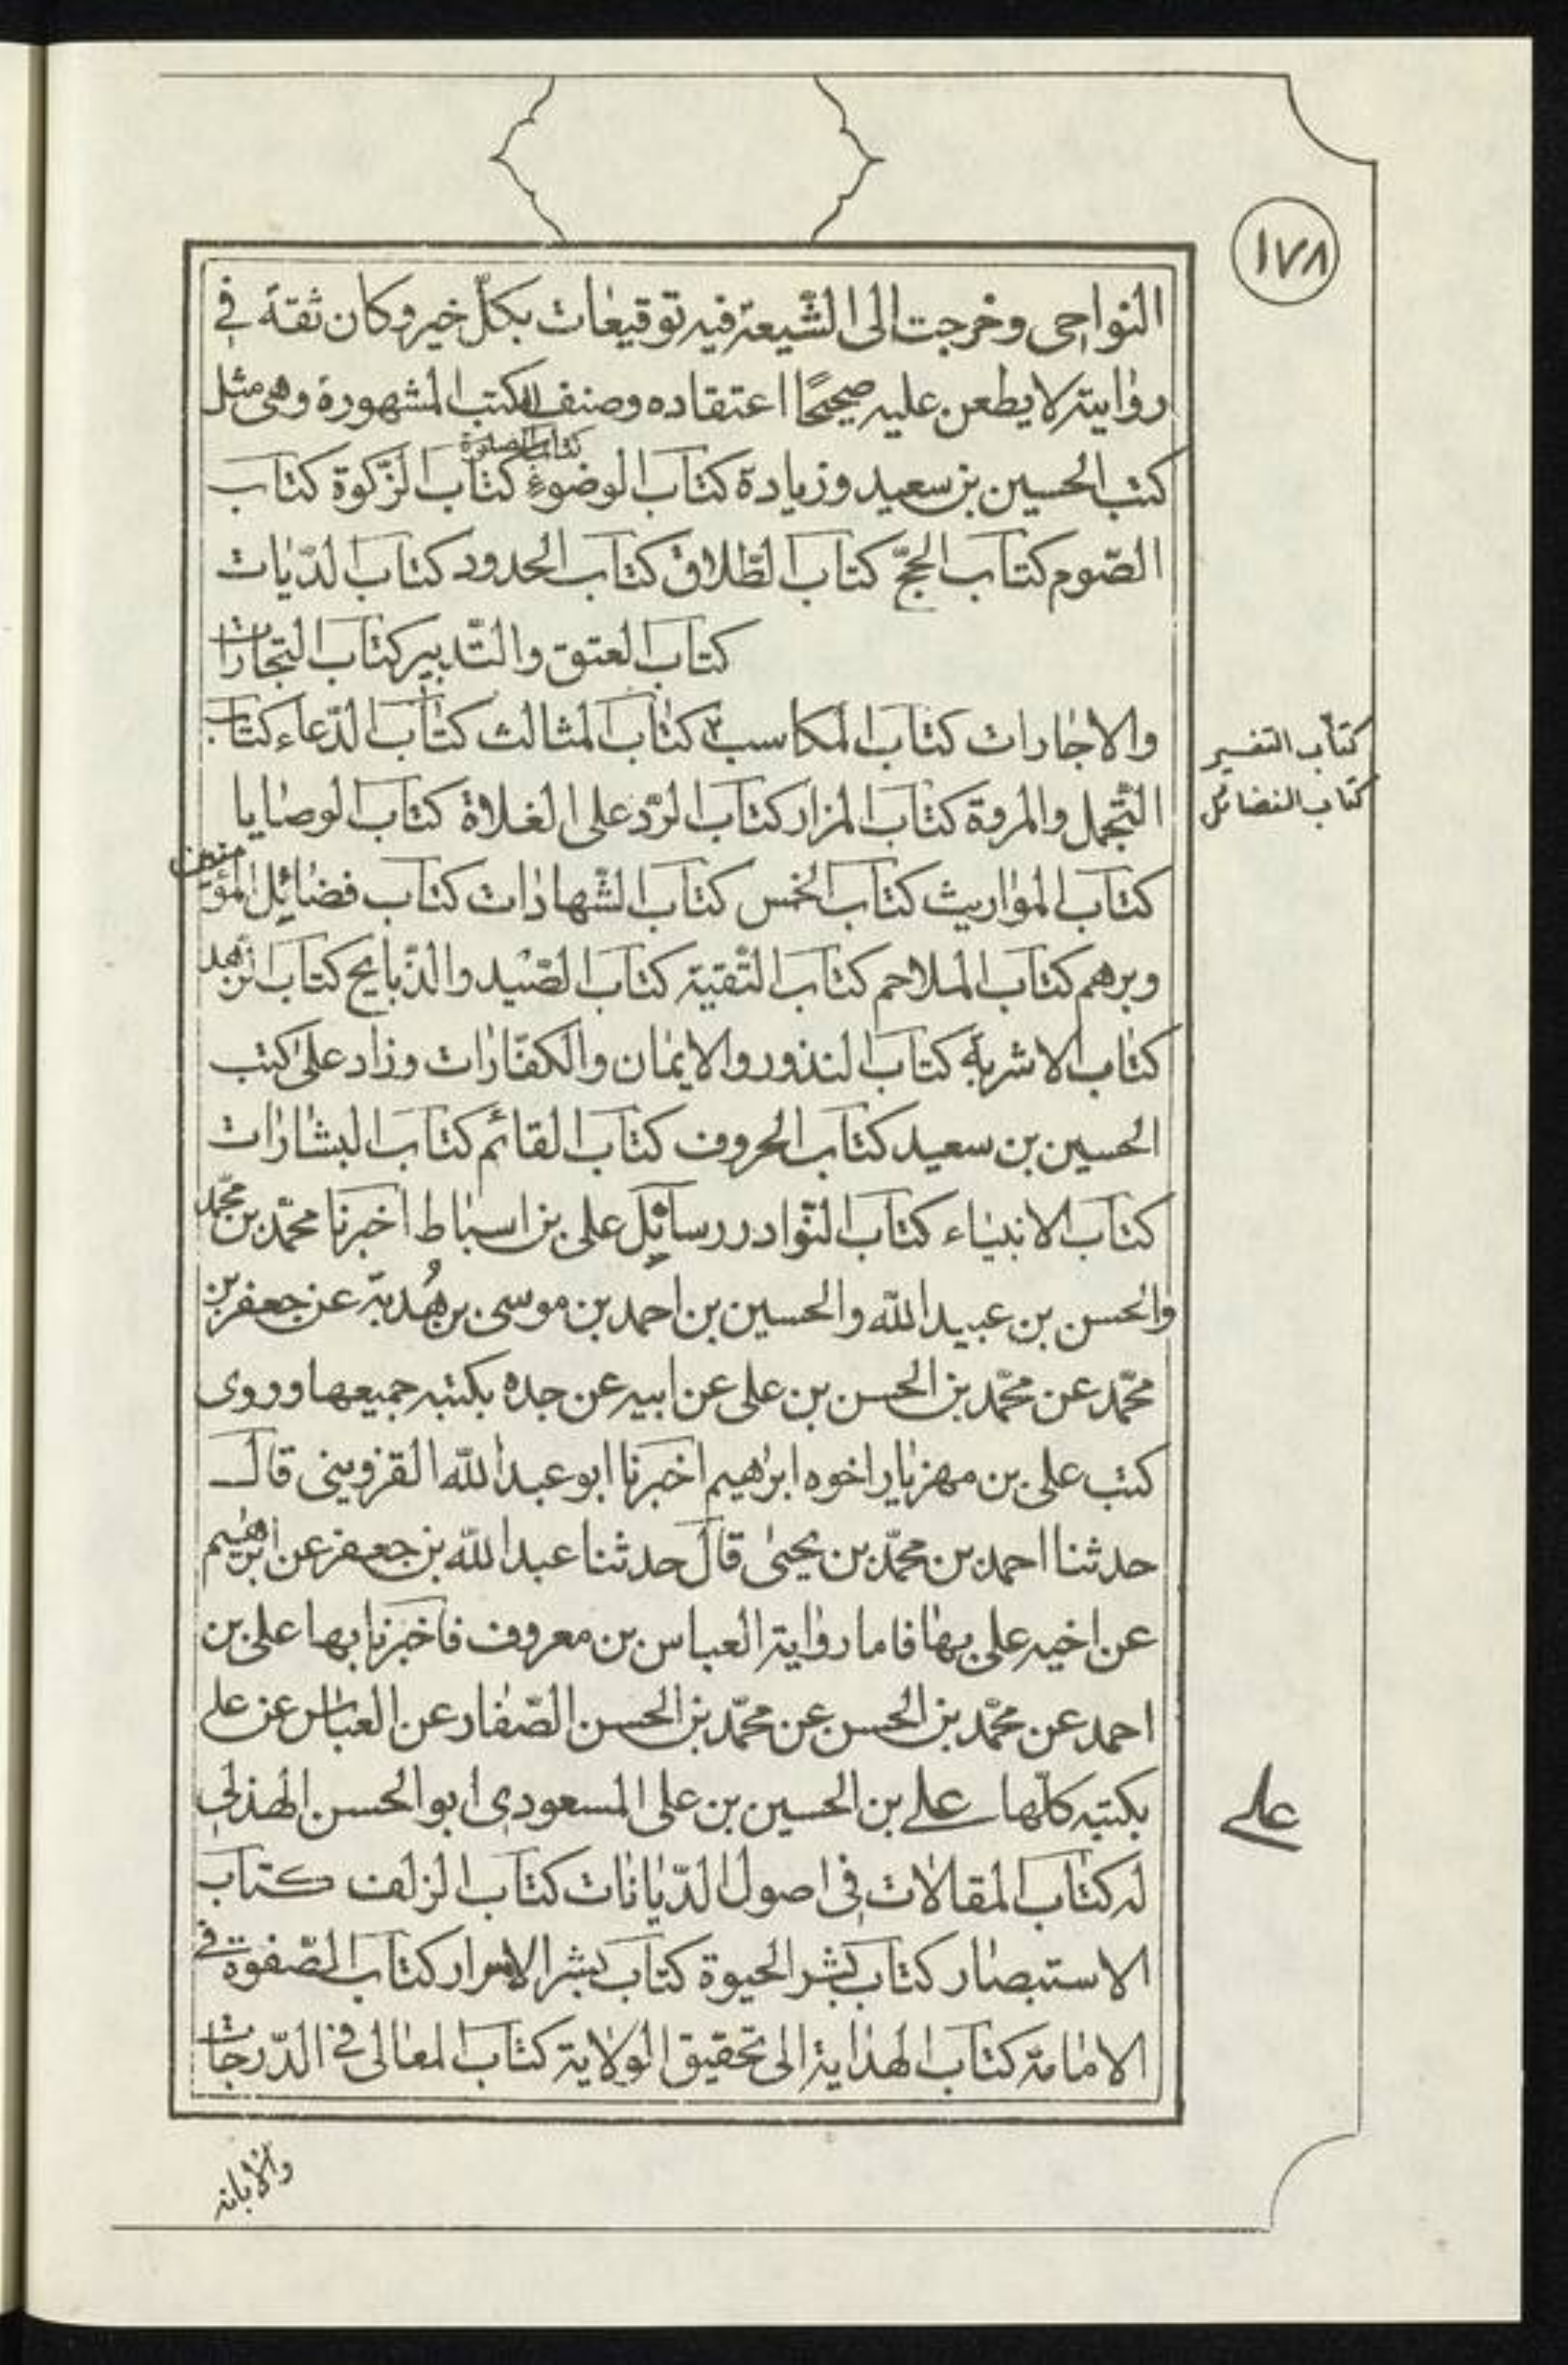 ١٧٨
النواحى وخرجت الى الشّيعة فيه توقيعات بكلّ خير وكان ثقة فى
روايته لا يطعن عليه صحيحًا اعتقاده وصنف الكتب المشهورة وهى مثل
كتاب الصلوة
كتب الحسين بن سعيد وزيادة كتاب الوضوء كتاب الزّكوة كتاب
الصّوم كتاب الحجّ كتاب الطّلاق كتاب الحدود كتاب الدّيات
كتاب العتق والتّدبير كتاب التجارات
والاجارات كتاب المكاسب كتاب المثالث كتاب الدّعاء كتاب
كتاب التفسير
كتاب الفضائل
التّجمل والمروة كتاب المزار كتاب الرّد على الغلاة كتاب الوصايا
كتاب المواريث كتاب الخمس كتاب الشّهادات كتاب فضائل المؤمنين
وبرهم كتاب الملاحم كتاب التّقيّة كتاب الصّيد والذّبايح كتاب الزهد
كتاب الاشربة كتاب النذور والايمان والكفّارات وزاد على كتب
الحسين بن سعيد كتاب الحروف كتاب القائم كتاب البشارات
كتاب الانبياء كتاب النّوادر رسائل على بن اسباط اخبرنا محمّد بن محمّد
والحسن بن عبيد الله والحسين بن احمد بن موسى بن هُدبة عن جعفر بن
محمّد عن محمّد بن الحسن بن على عن ابيه عن جده بكتبه جميعها وروى
كتب على بن مهزيار اخوه ابرهيم اخبرنا ابو عبد الله القزوينى قال
حدثنا احمد بن محمّد بن يحيى قال حدثنا عبد الله بن جعفر عن ابرهيم
عن اخيه على بها فاما رواية العباس بن معروف فاخبرنا بها على بن
احمد عن محمّد بن الحسن عن محمّد بن الحسن الصّفار عن العباس عن على
بكتبه كلّها على بن الحسين بن على المسعودى ابو الحسن الهذلى
على
له كتاب المقالات فى اصول الدّيانات كتاب الزلف كتاب
الاستبصار كتاب بشر الحيوة كتاب بشر الاسرار كتاب الصّفوة فى
الامامة كتاب الهداية الى تحقيق الولاية كتاب المعالى فى الدّرجات
والابانه